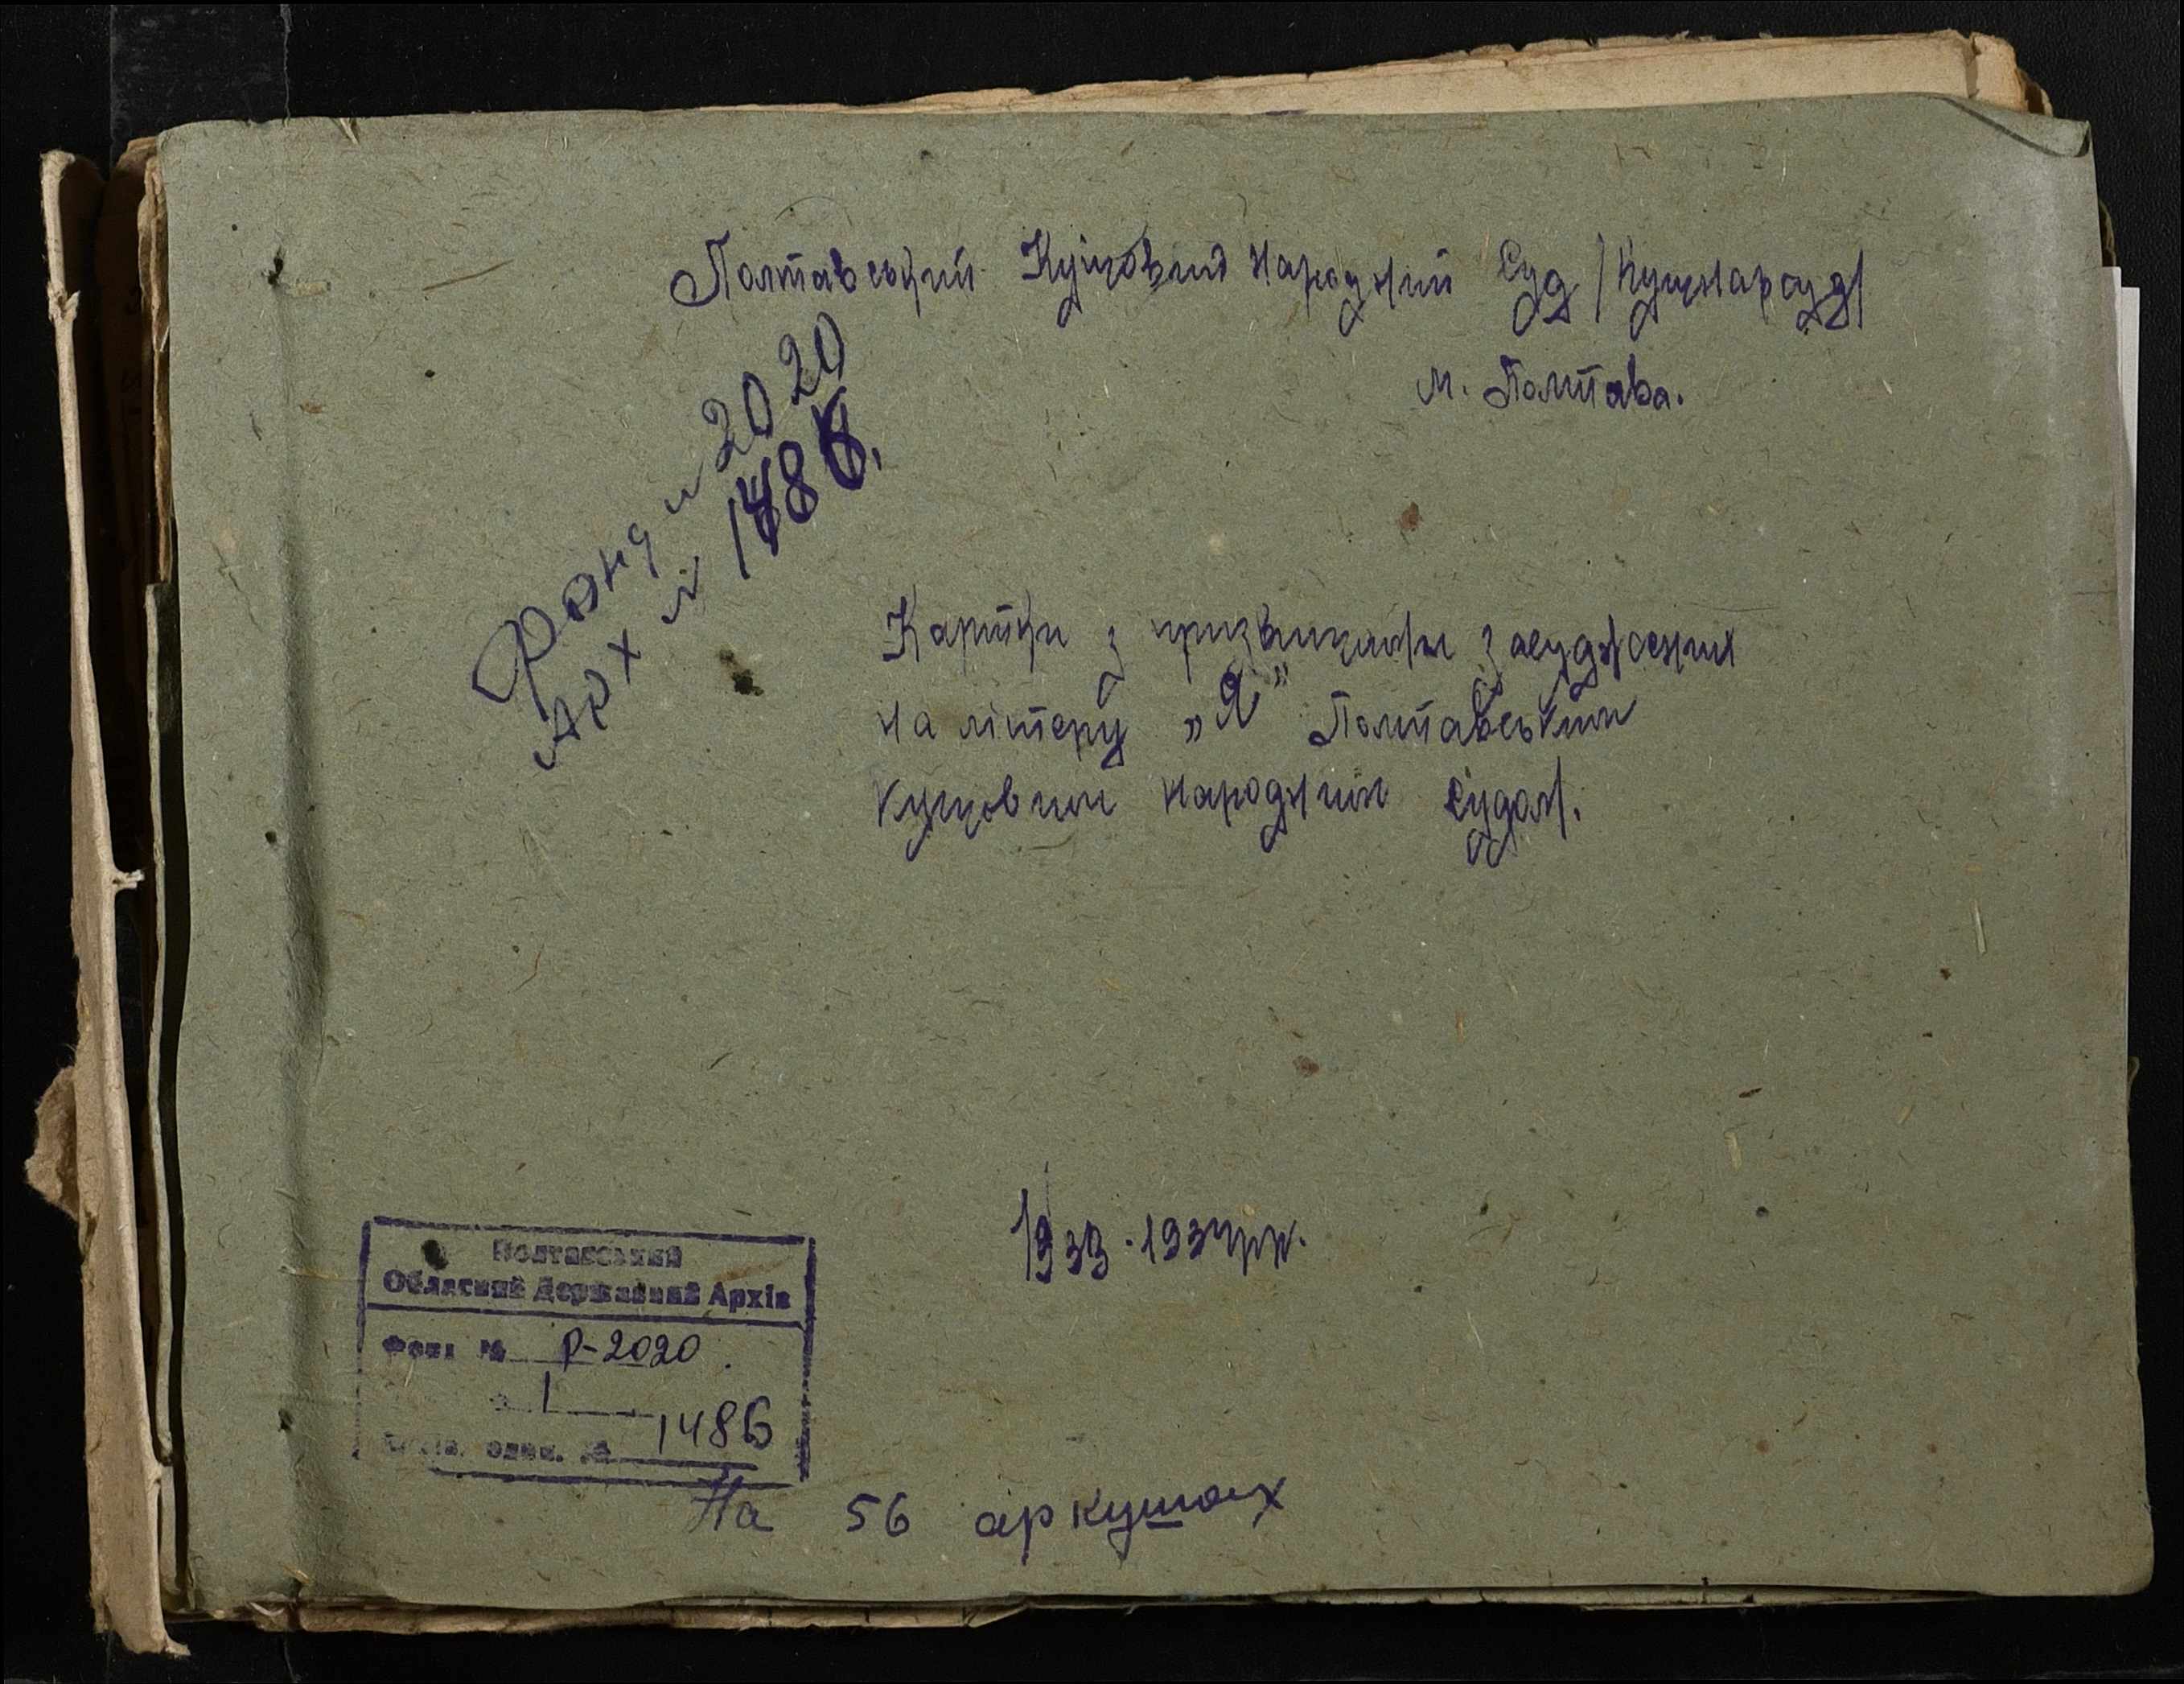 Полтавський Кущовий народний Суд /Кущнарсуд/
м. Полтава.
Фонд № 2020
Арх № 1486.
Картки з призвищами засуджених
на літеру „Я" Полтавським
кущовим народним судом.
1933-1934рр.
Полтавський
Обласний Державний Архів
Фонд № Р-2020
1
один. № 1486
На 56 аркушах